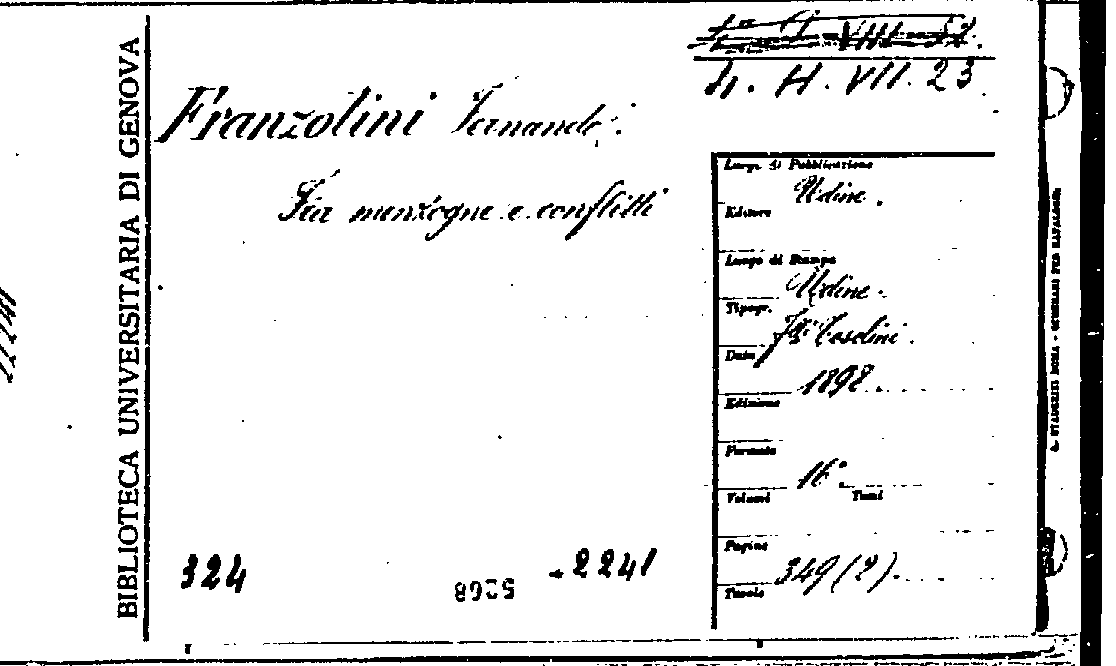 BIBLIOTECA UNIVERSITARIA DI GENOVA
h. H. VII. 23
Franzolini Fernando.
Fra menzogne e conflitti
Luogo di Pubblicazione
Udine.
Editore
Luogo di Stampa
Udine.
Tipogr.
Coselini.
Data
1898.
Edizione
Formato
16º
Volumi Tomi
Pagine
349 (2).
Tavole
324
2241
5268